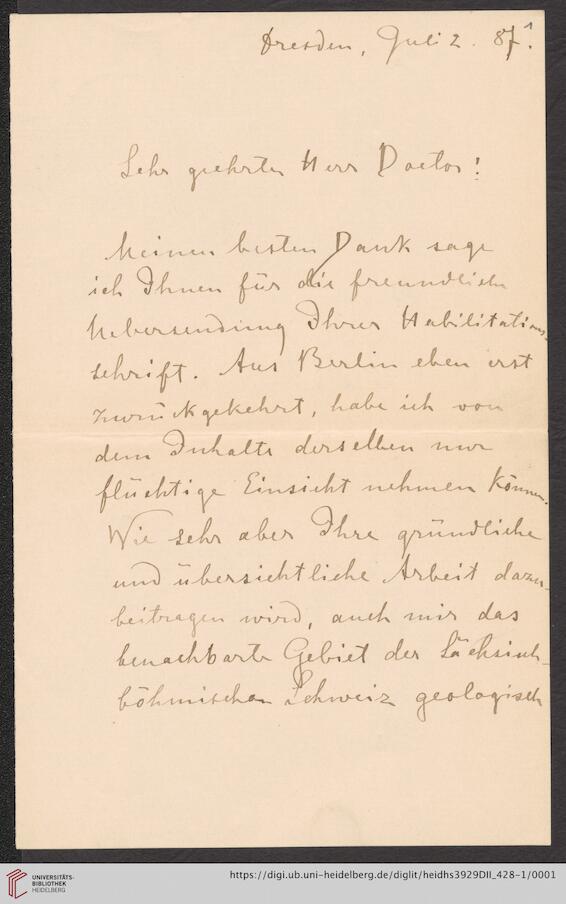 Dresden, Juli 2. 87.
1
Sehr geehrter Herr Doctor!
Meinen besten Dank sage
ich Ihnen für die freundliche
Uebersendung Ihrer Habilitations-
schrift. Aus Berlin eben erst
zurückgekehrt, habe ich von
dem Inhalte derselben nur
flüchtige Einsicht nehmen können.
Wie sehr aber Ihre gründliche
und übersichtliche Arbeit dazu
beitragen wird, auch mir das
benachbarte Gebiet der Sächsisch-
böhmischen Schweiz geologisch
UNIVERSITÄTS-
BIBLIOTHEK
HEIDELBERG
https://digi.ub.uni-heidelberg.de/diglit/heidhs3929DII_428-1/0001